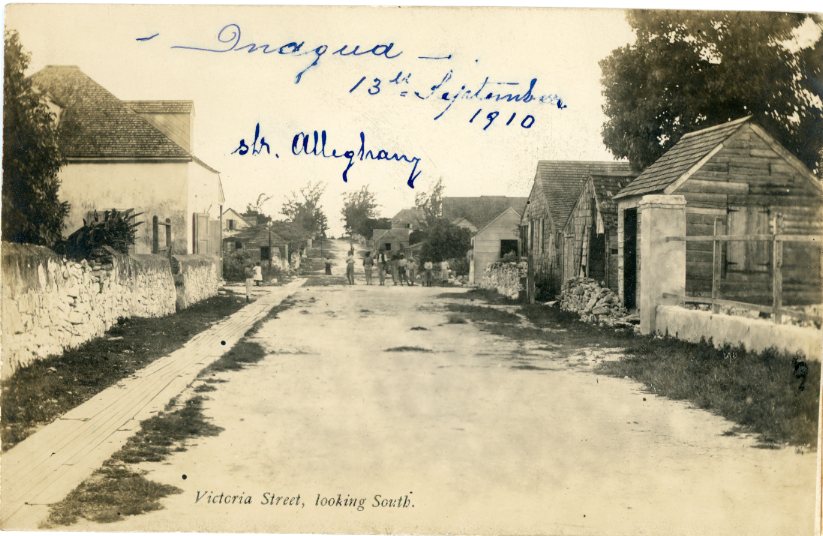 - Inagua -
13th September
1910
str. Alleghany
Victoria Street, looking South.